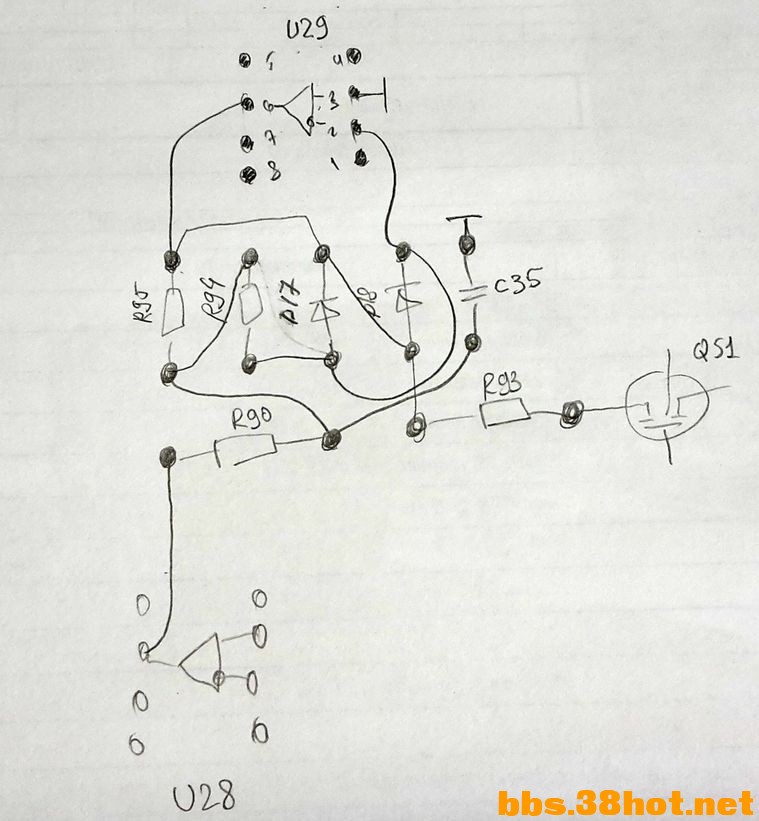 U29
5 4
6 3
7 2
8 1
R95 R94 D17 D18 C35
R90 R93 Q51
U28
bbs.38hot.net